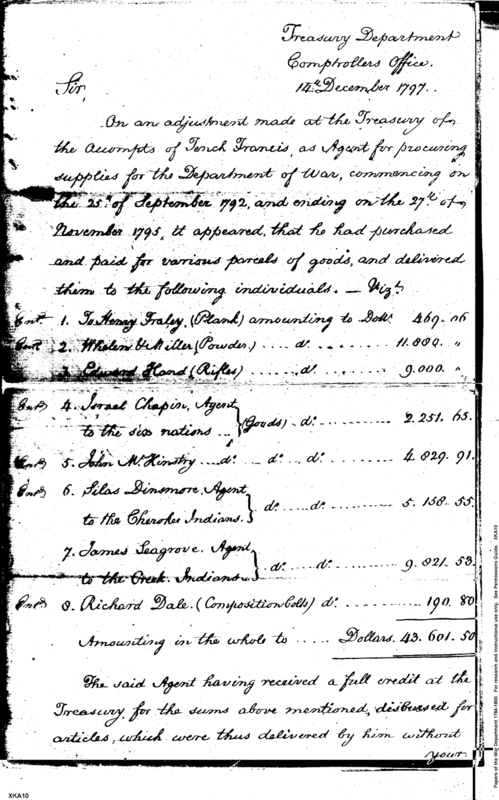 Treasury Department
Comptrollers Office.
14th December 1797.
Sir,
On an adjustment made at the Treasury of
the Accompts of Tench Francis, as Agent for procuring
supplies for the Department of War, commencing on
the 25th of September 1792, and ending on the 27th of
November 1795, it appeared, that he had purchased
and paid for various parcels of goods, and delivered
them to the following individuals. — Vizt.
Entd 1. To Henry Fraley, (Plank) amounting to Dolls. 469..06
Entd 2. Whelen & Miller (Powder.) .... do. ........ 11.880. "
3. Edward Hand (Rifles) ....... do. ........ 9.000. "
Entd 4. Israel Chapin, Agent
to the six nations ... } (Goods) . do. ........ 2.251. 65.
Entd 5. John McKinstry .... do. .. do. .. do. ........ 4.829. 91.
Entd 6. Silas Dinsmore, Agent
to the Cherokee Indians. } do. ... do. ........ 5.158..55.
7. James Seagrove. Agent
to the Creek Indians } do. ... do. ........ 9.821. 53.
Entd 8. Richard Dale. (Composition Bolts) do. ........ 190. 80
Amounting in the whole to ..... Dollars. 43.601.50
The said Agent having received a full credit at the
Treasury, for the sums above mentioned, disbursed for
articles, which were thus delivered by him without
your
XKA10
Papers of the War Department 1784-1800. For research and instructional use only. See Permissions Guide. XKA10